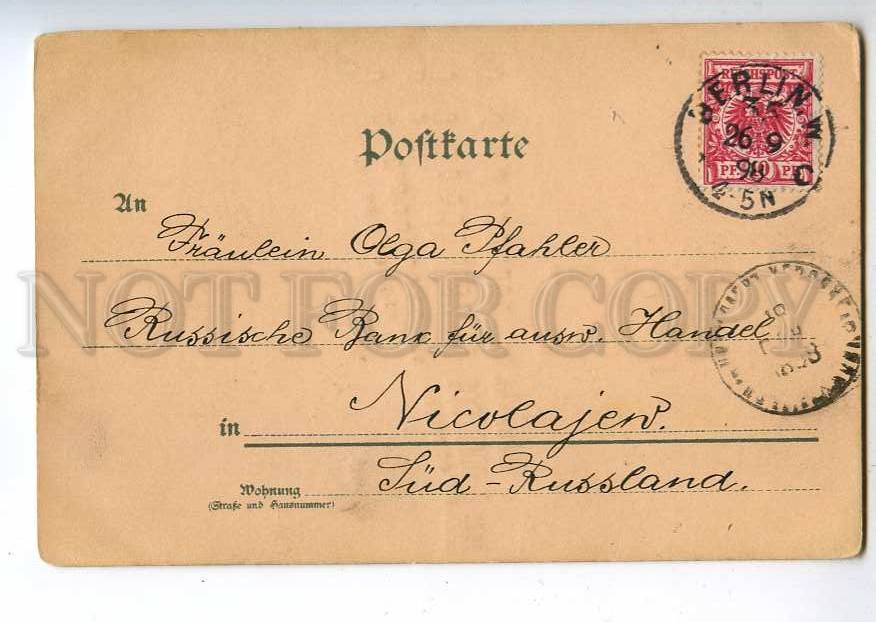 Postkarte
REICHSPOST
BERLIN. W.
35
26 9
98
4-5N
C
10 PF
An Fräulein Olga Pfahler
Russische Bank für ausw. Handel
in Nicolajew.
Süd-Russland.
Wohnung
(Straße und Hausnummer)
NOT FOR COPY